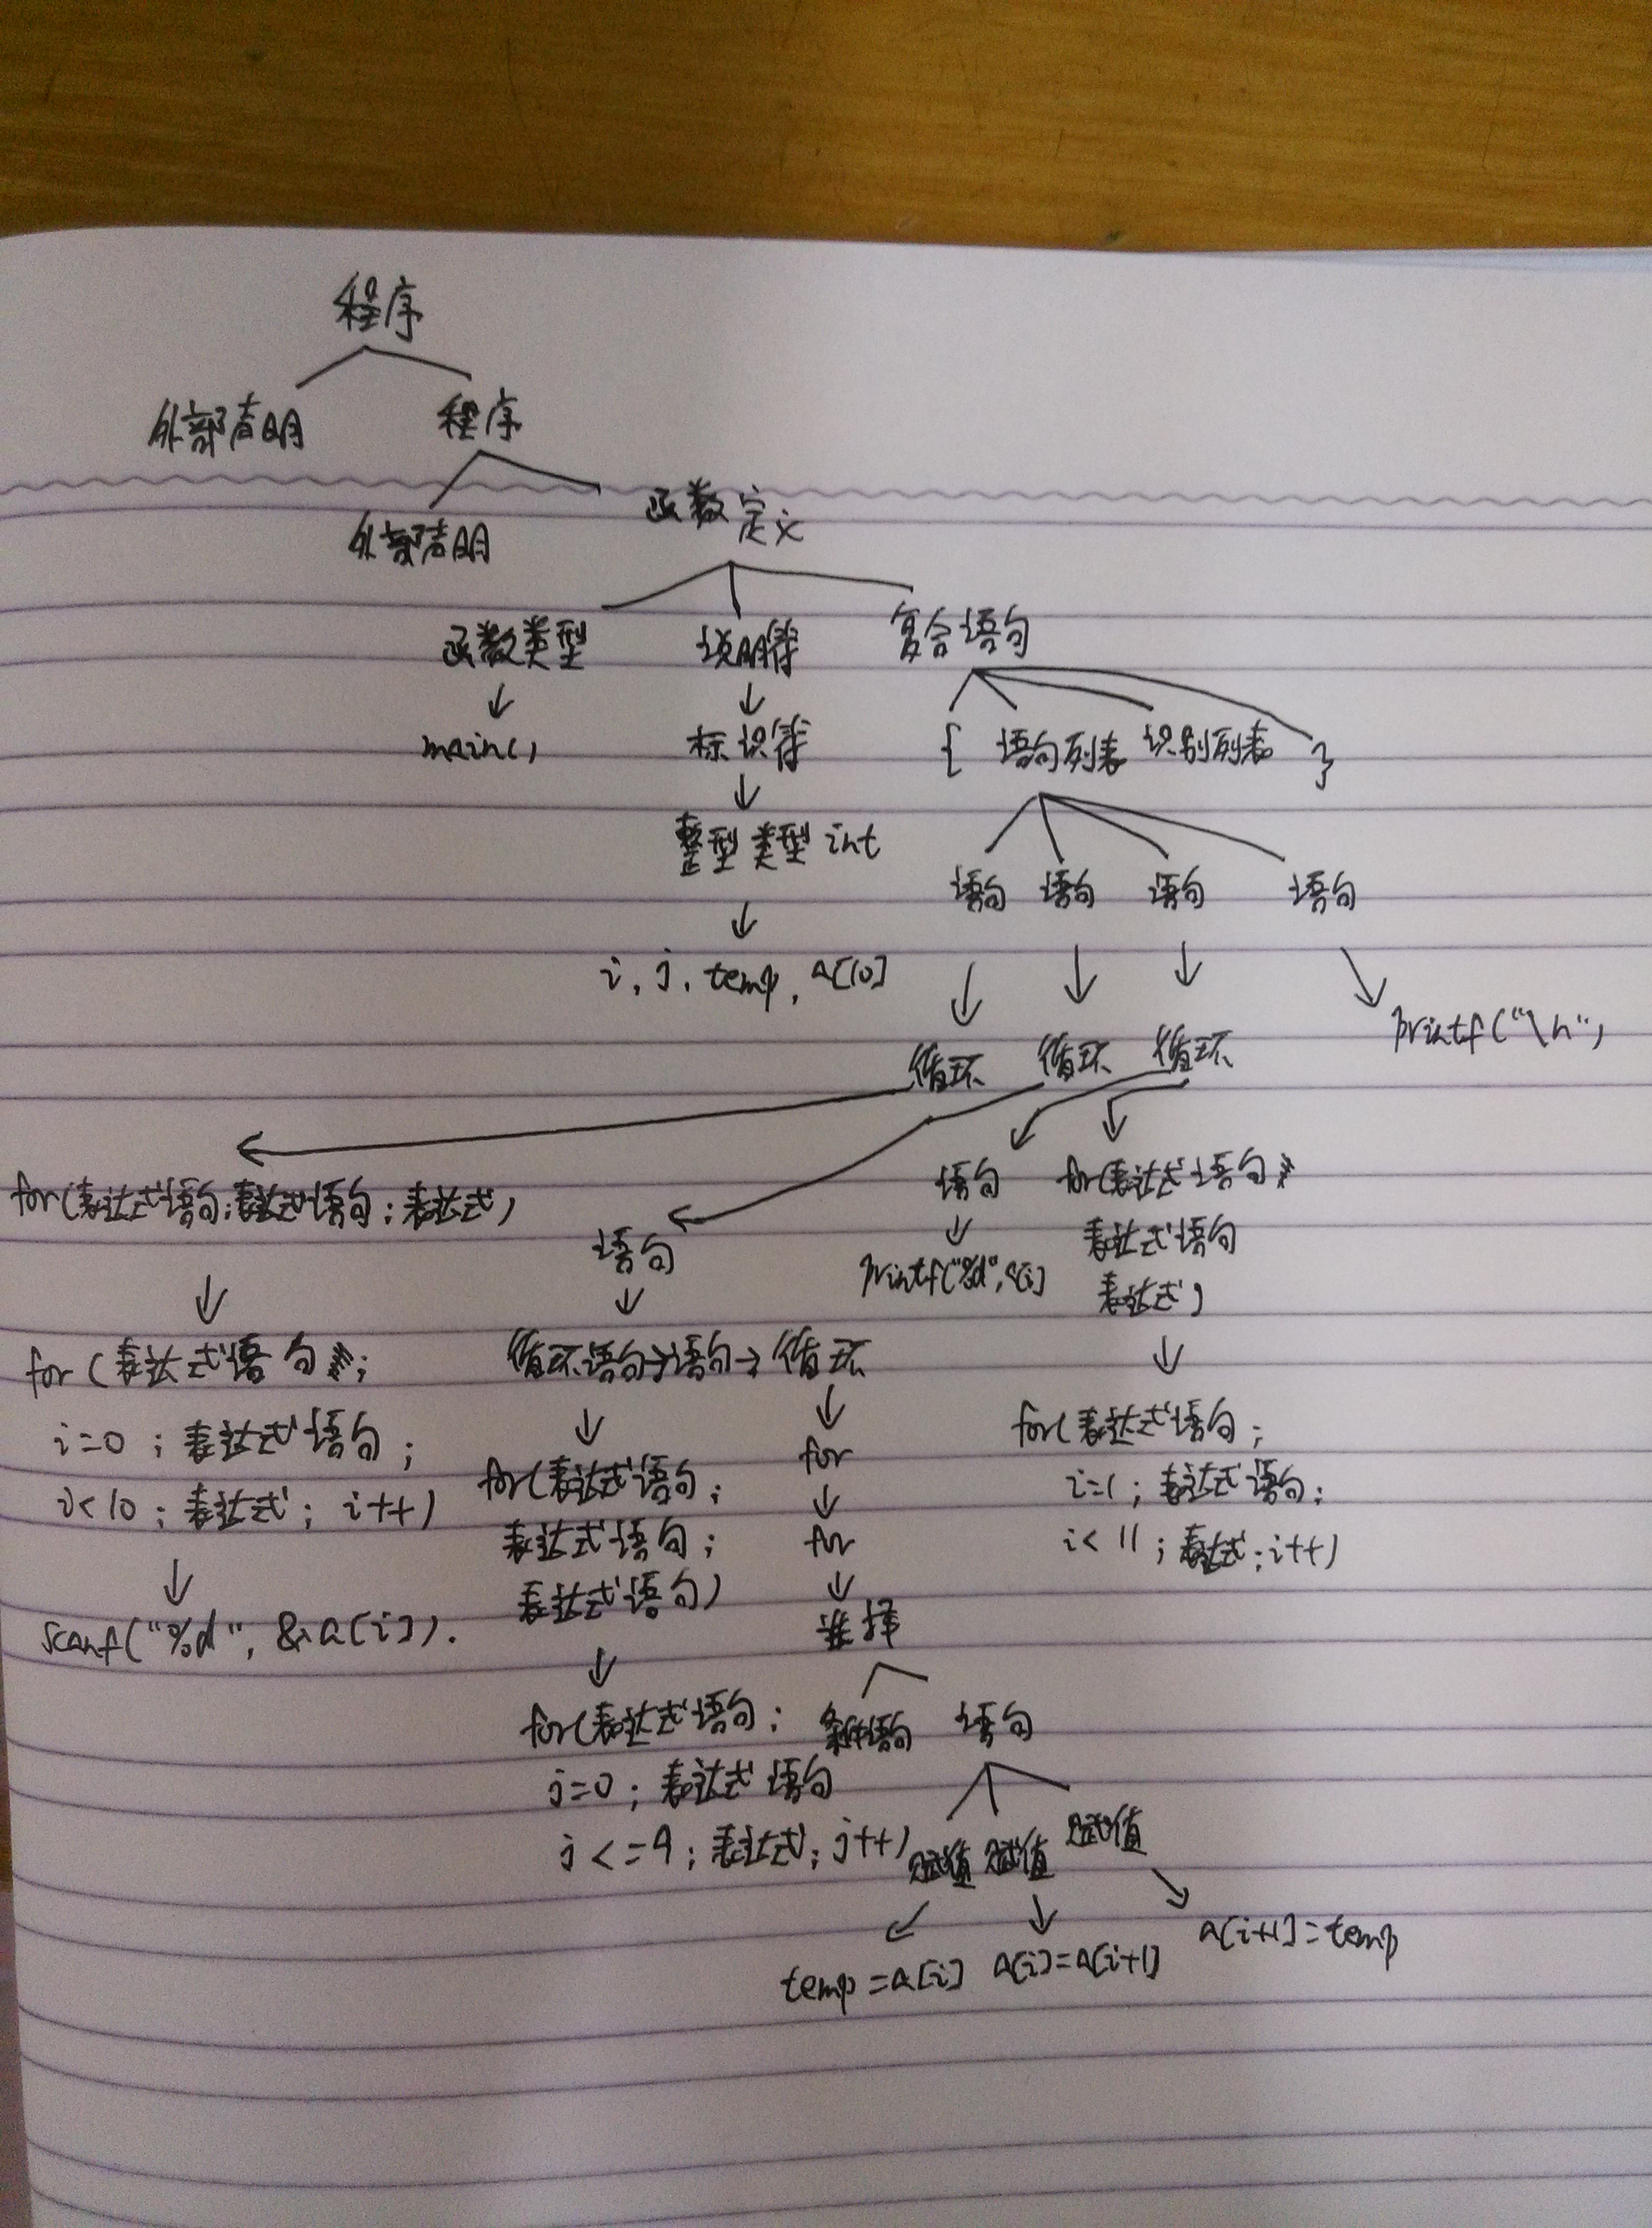 程序
外部声明 程序
外部声明 函数定义
函数类型 说明符 复合语句
main() 标识符 { 语句列表 识别列表 }
整型类型 int 语句 语句 语句 语句
i, j, temp, a[10]
printf("\n")
循环 循环 循环
for(表达式语句;表达式语句;表达式) 语句 语句 for(表达式语句
表达式语句
printf("%d",a[i] 表达式)
for(表达式语句; 循环语句→语句→循环
i=0;表达式语句; for(表达式语句; for for(表达式语句;
i<10;表达式; i++) 表达式语句; for i=1;表达式语句;
表达式语句) i<11;表达式;i++)
scanf("%d", &a[i]). 选择
for(表达式语句; 条件语句 语句
j=0;表达式语句
j<=9;表达式;j++) 赋值 赋值 赋值
temp=a[i] a[i]=a[i+1] a[i+1]=temp